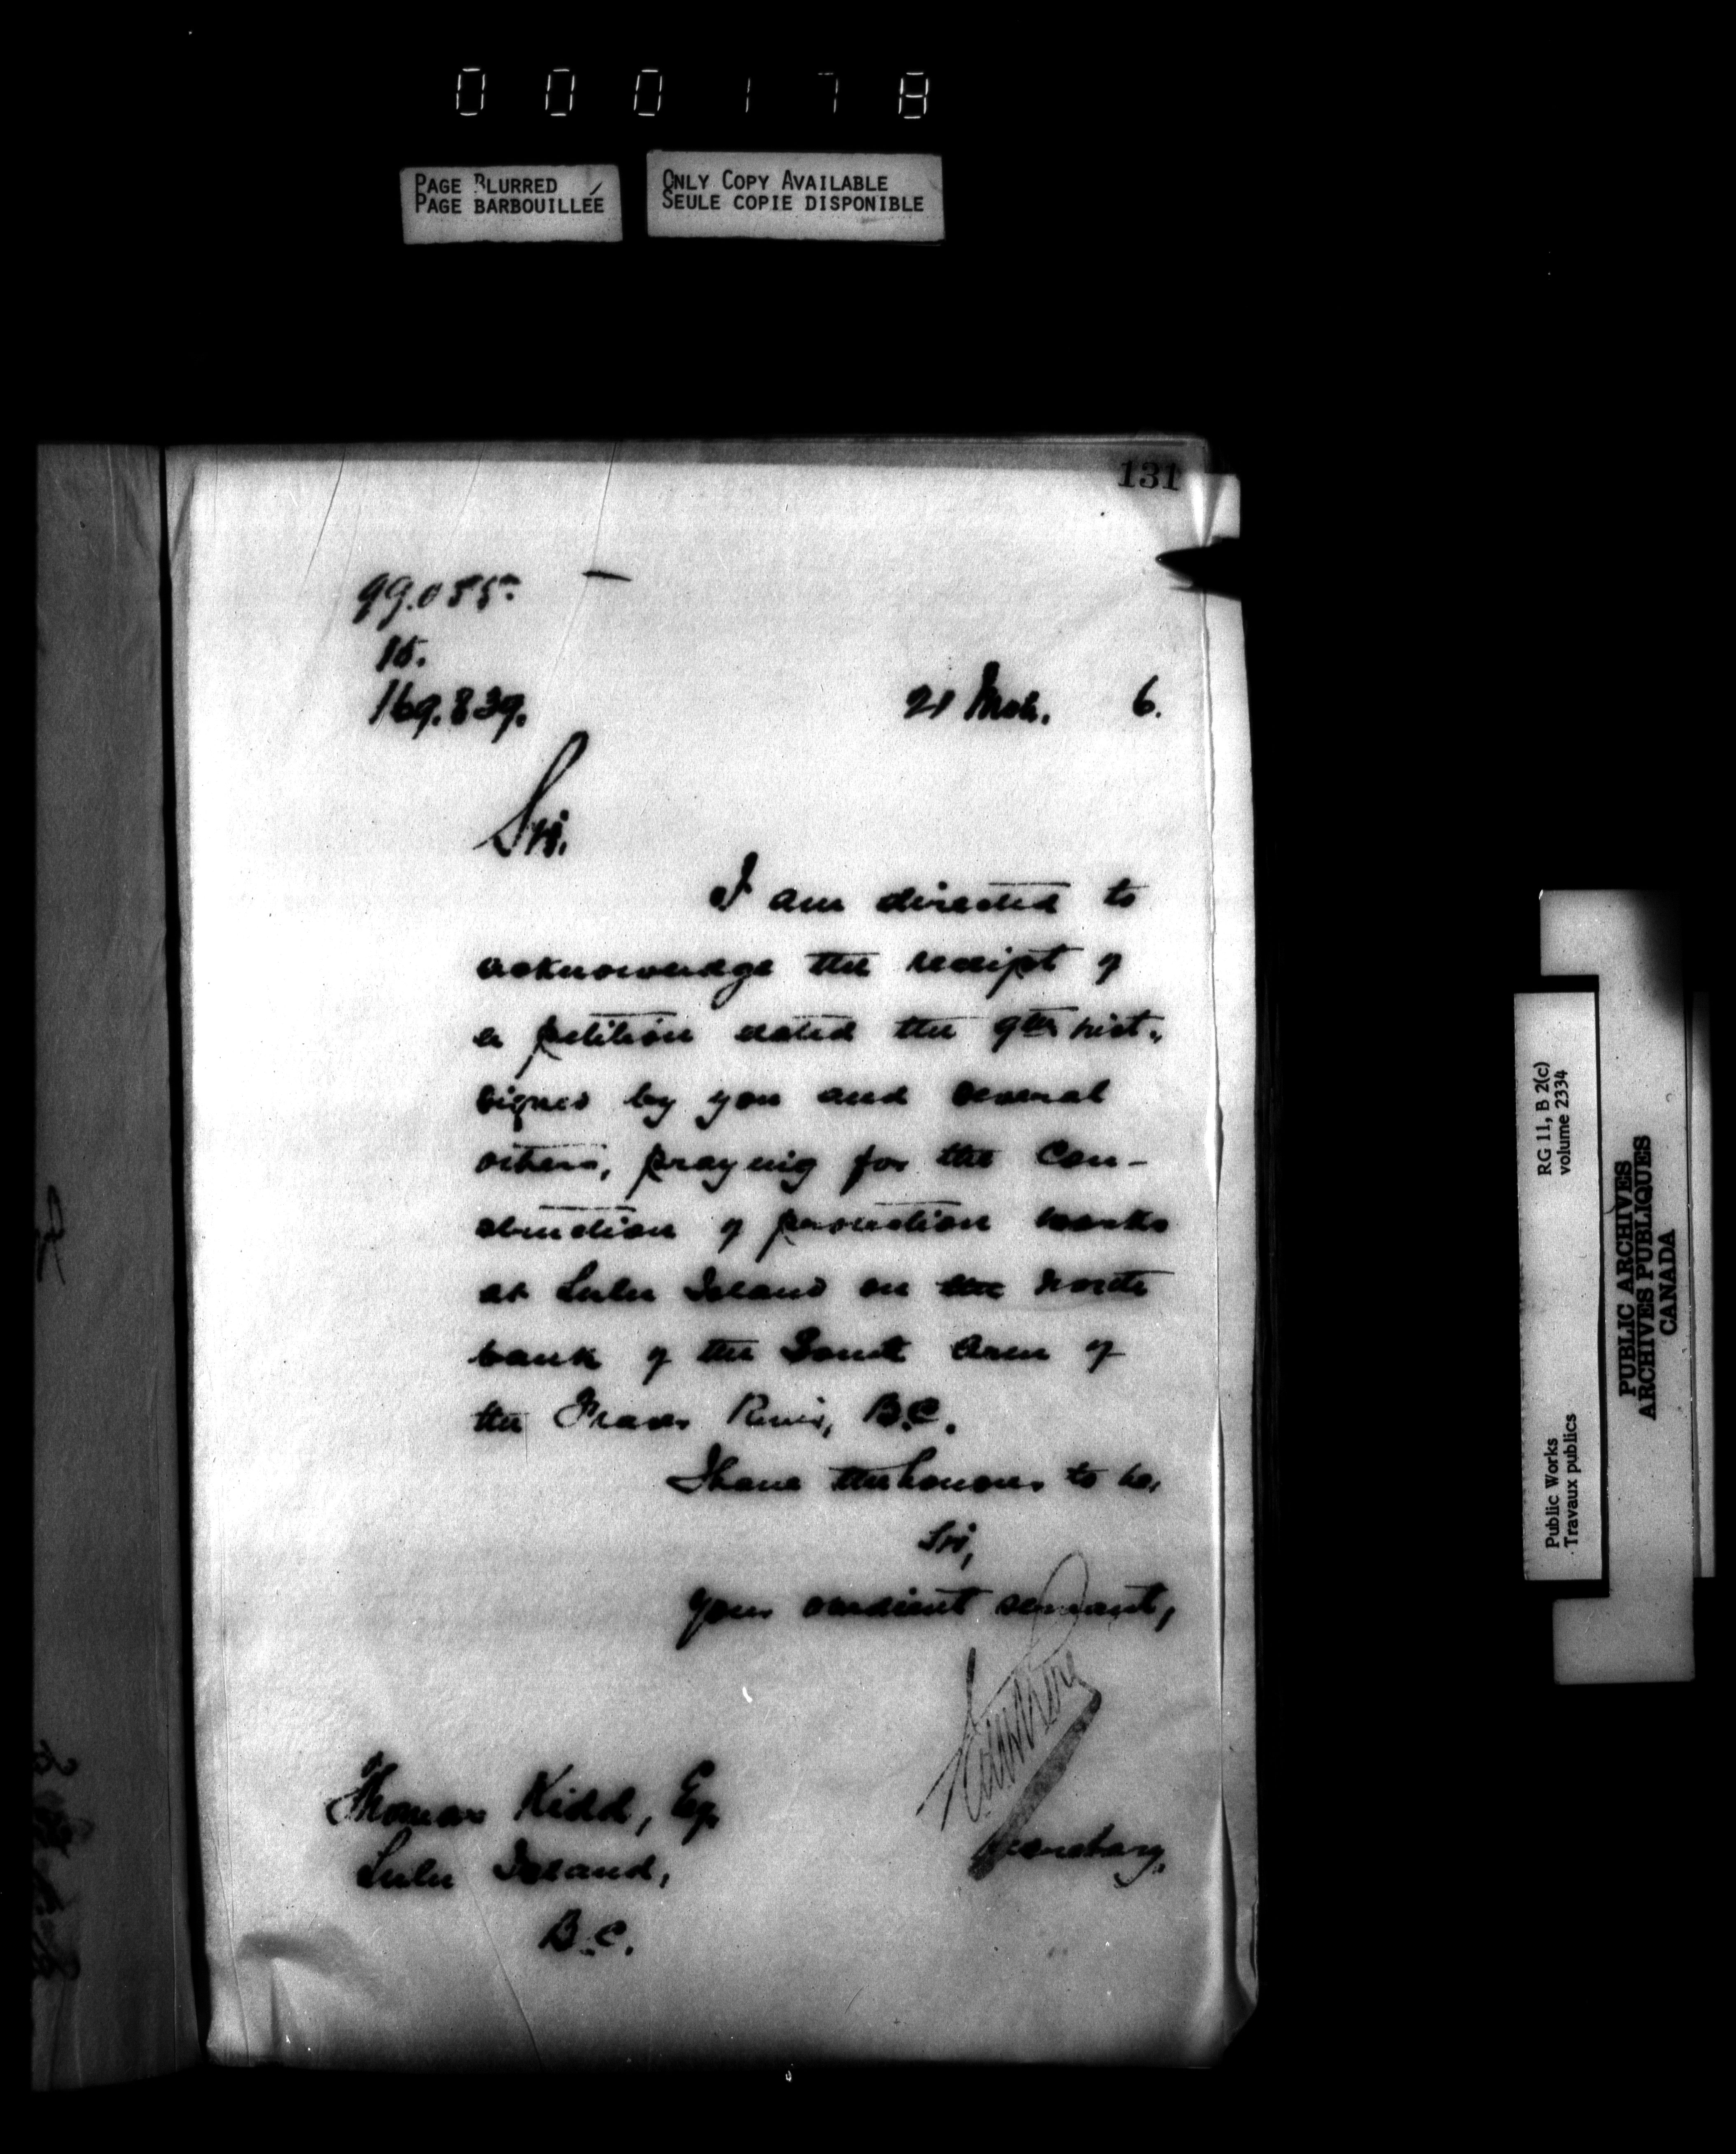 000178
PAGE BLURRED
PAGE BARBOUILLÉE
ONLY COPY AVAILABLE
SEULE COPIE DISPONIBLE
131
99.055
15.
169.839.
21 Mch. 6.
Sir,
I am directed to
acknowledge the receipt of
a petition dated the 9th inst.,
signed by you and several
others, praying for the con-
struction of protection works
at Lulu Island on the north
bank of the South Arm of
the Fraser River, B.C.
I have the honour to be,
Sir,
Your obedient servant,
Secretary.
Thomas Kidd, Esq.
Lulu Island,
B.C.
RG 11, B 2(c)
volume 2334
Public Works
Travaux publics
PUBLIC ARCHIVES
ARCHIVES PUBLIQUES
CANADA